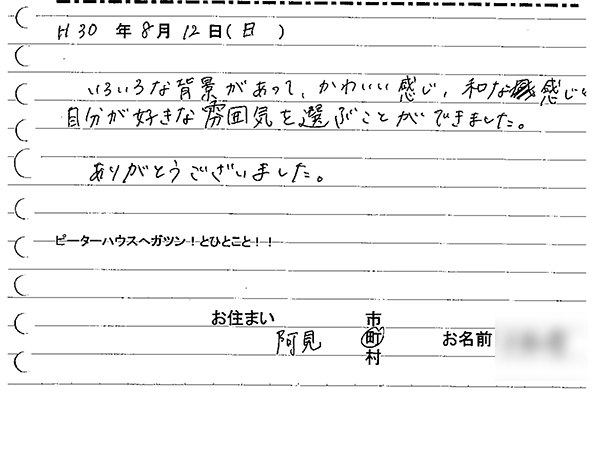 H30 年 8月 12日(日 )
いろいろな背景があって、かわいい感じ、和な感じと
自分が好きな雰囲気を選ぶことができました。
ありがとうございました。
ピーターハウスへガツン!とひとこと!!
お住まい 阿見 市 町 村 お名前